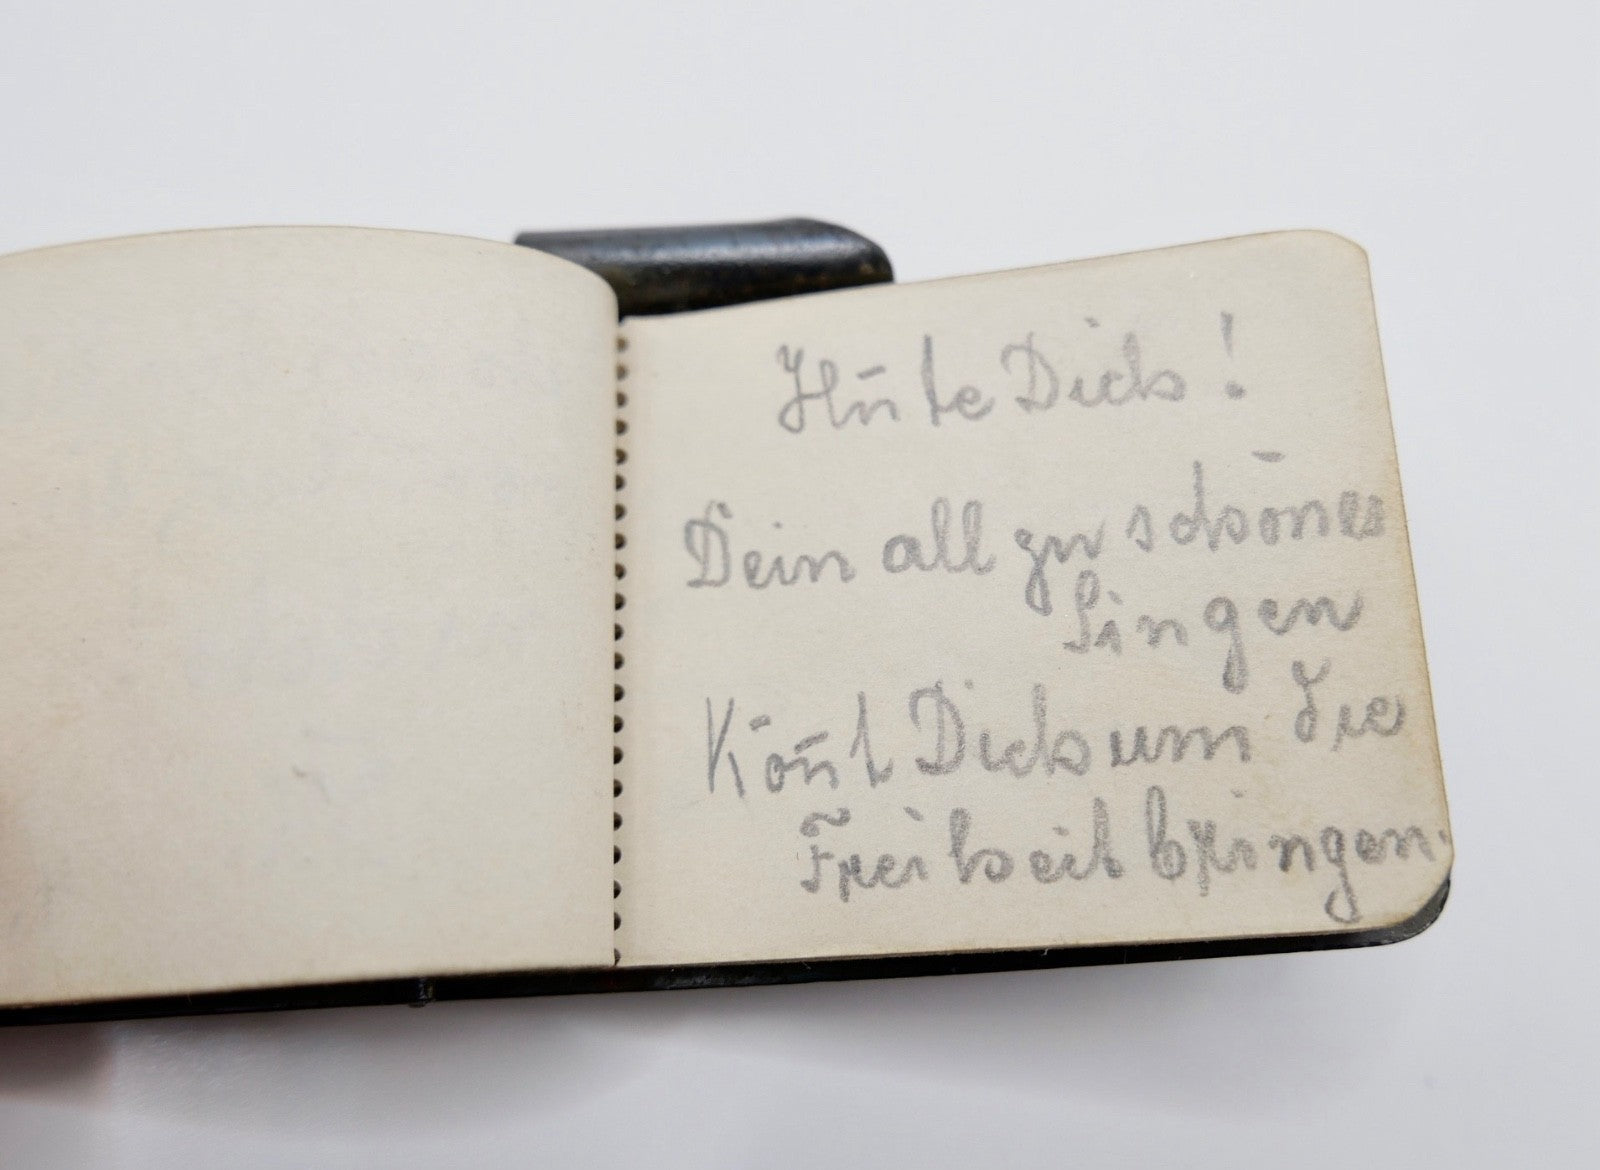 Hüte Dich!
Dein all zu schönes
Singen
Könt Dich um die
Freiheit bringen.